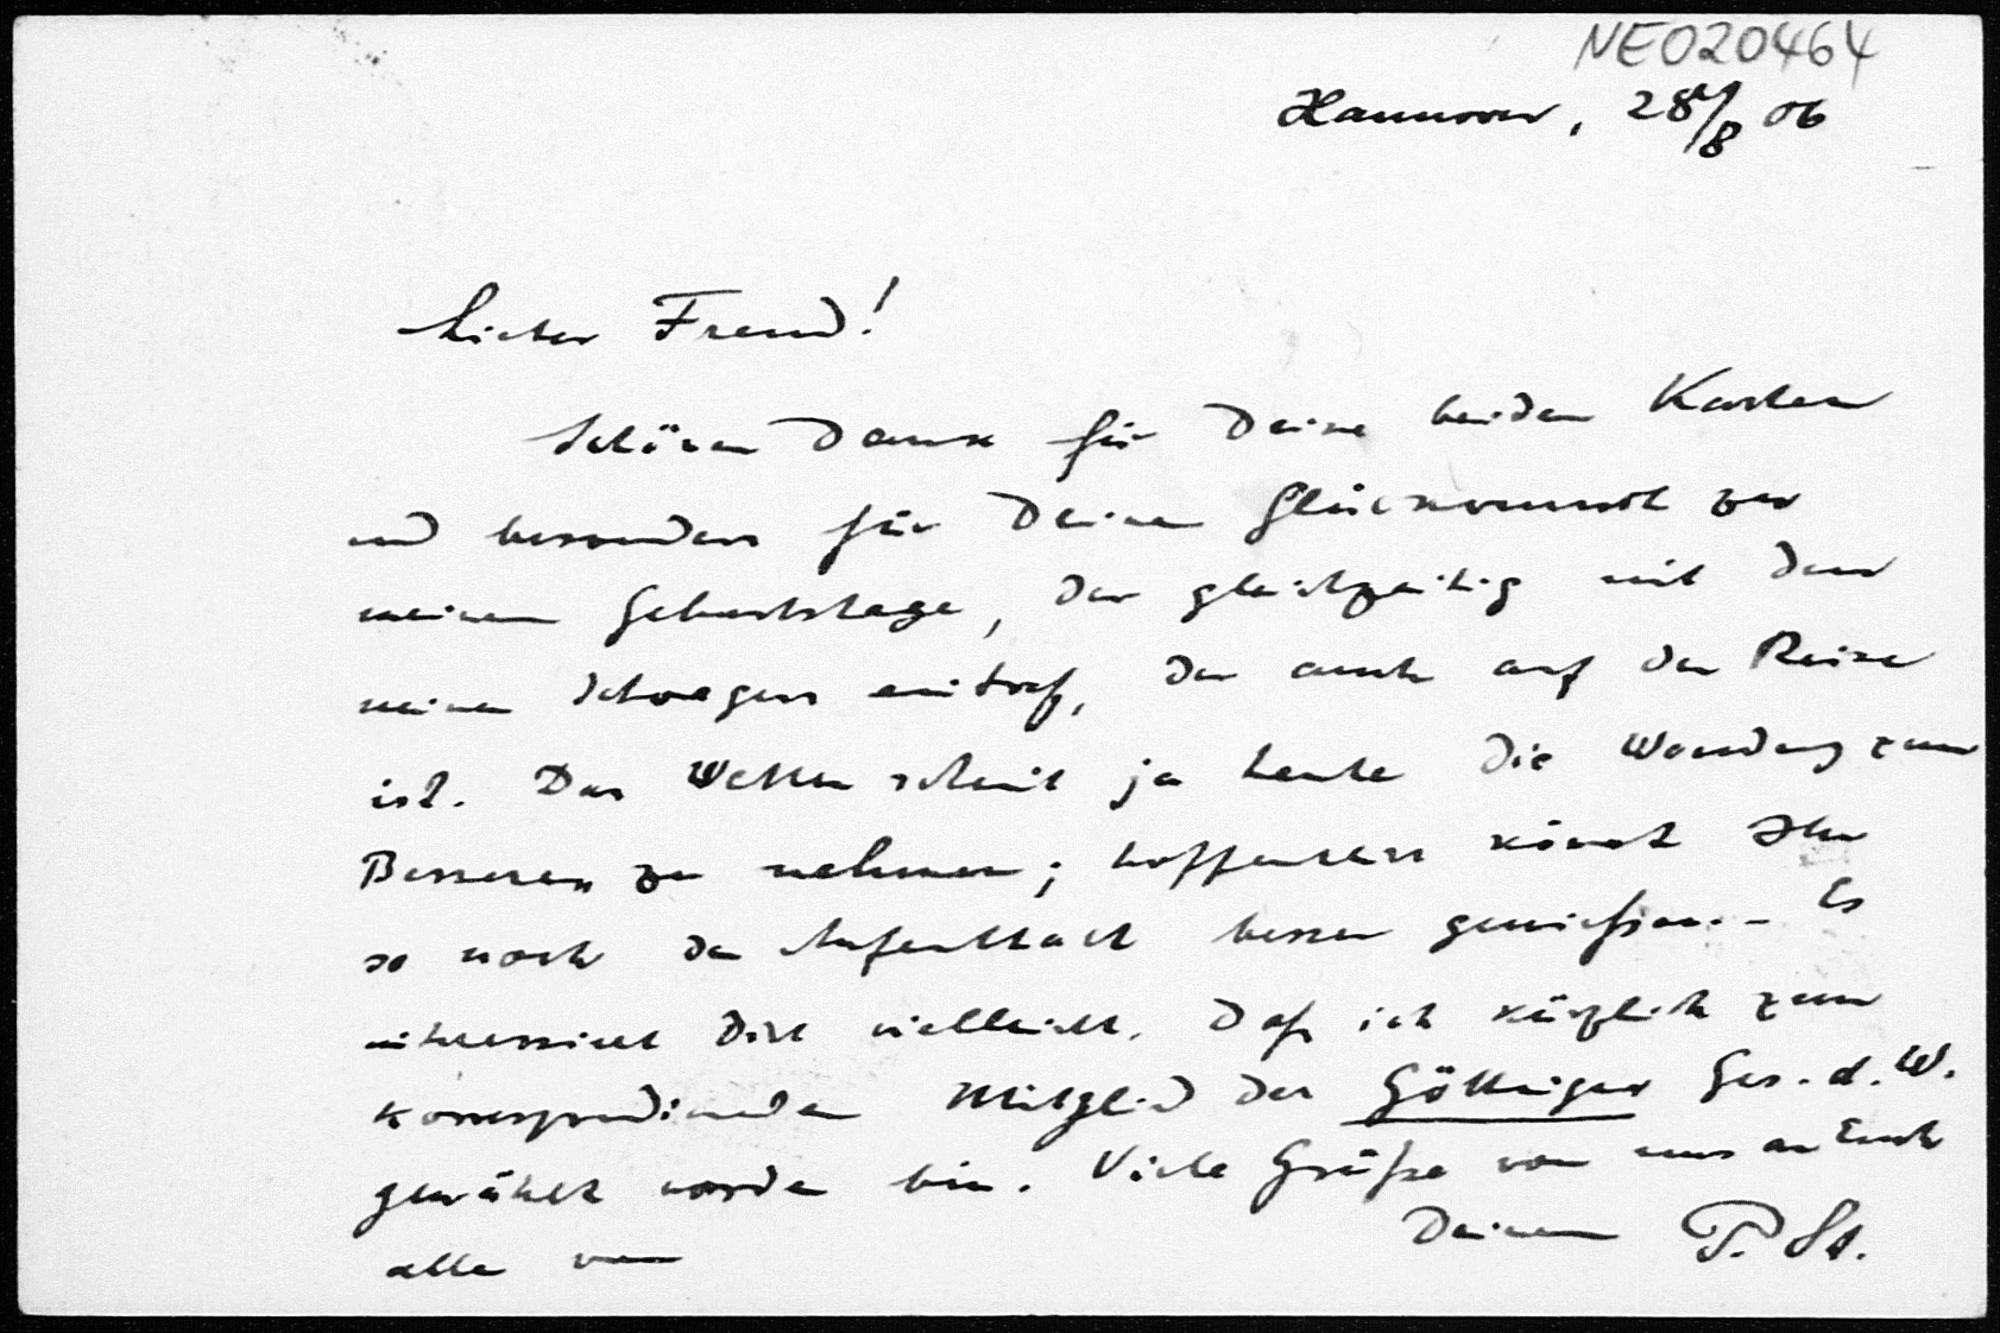 NE020464
Hannover, 28/8 06
Lieber Freund!
Schönen Dank für Deine beiden Karten
und besonders für Deinen Glückwunsch zu
meinem Geburtstage, der gleichzeitig mit dem
meines Schwagers eintraf, der auch auf der Reise
ist. Das Wetter scheint ja heute die Wendung zum
Besseren zu nehmen; hoffentlich könnt Ihr
so noch den Aufenthalt besser genießen. - Es
interessiert Dich vielleicht, daß ich kürzlich zum
korrespondierenden Mitglied der Göttinger Ges. d. W.
gewählt worden bin. Viele Grüße von uns an Euch
alle von Deinem P. St.